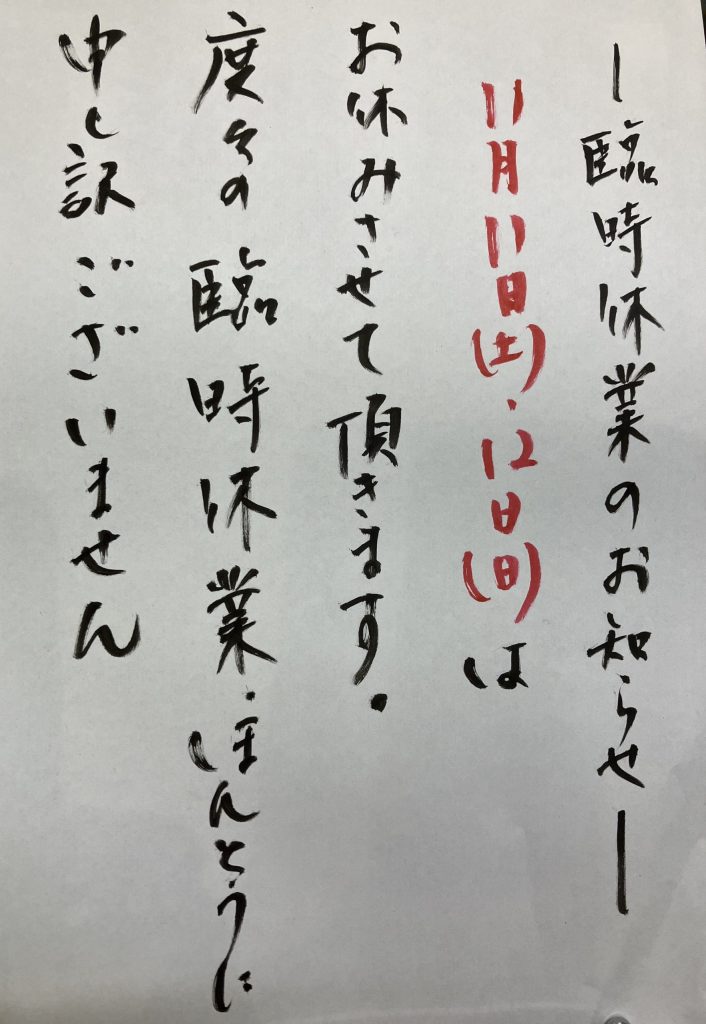 ー臨時休業のお知らせー
11月11日(土)・12日(日)は
お休みさせて頂きます。
度々の臨時休業・ほんとうに
申し訳ございません